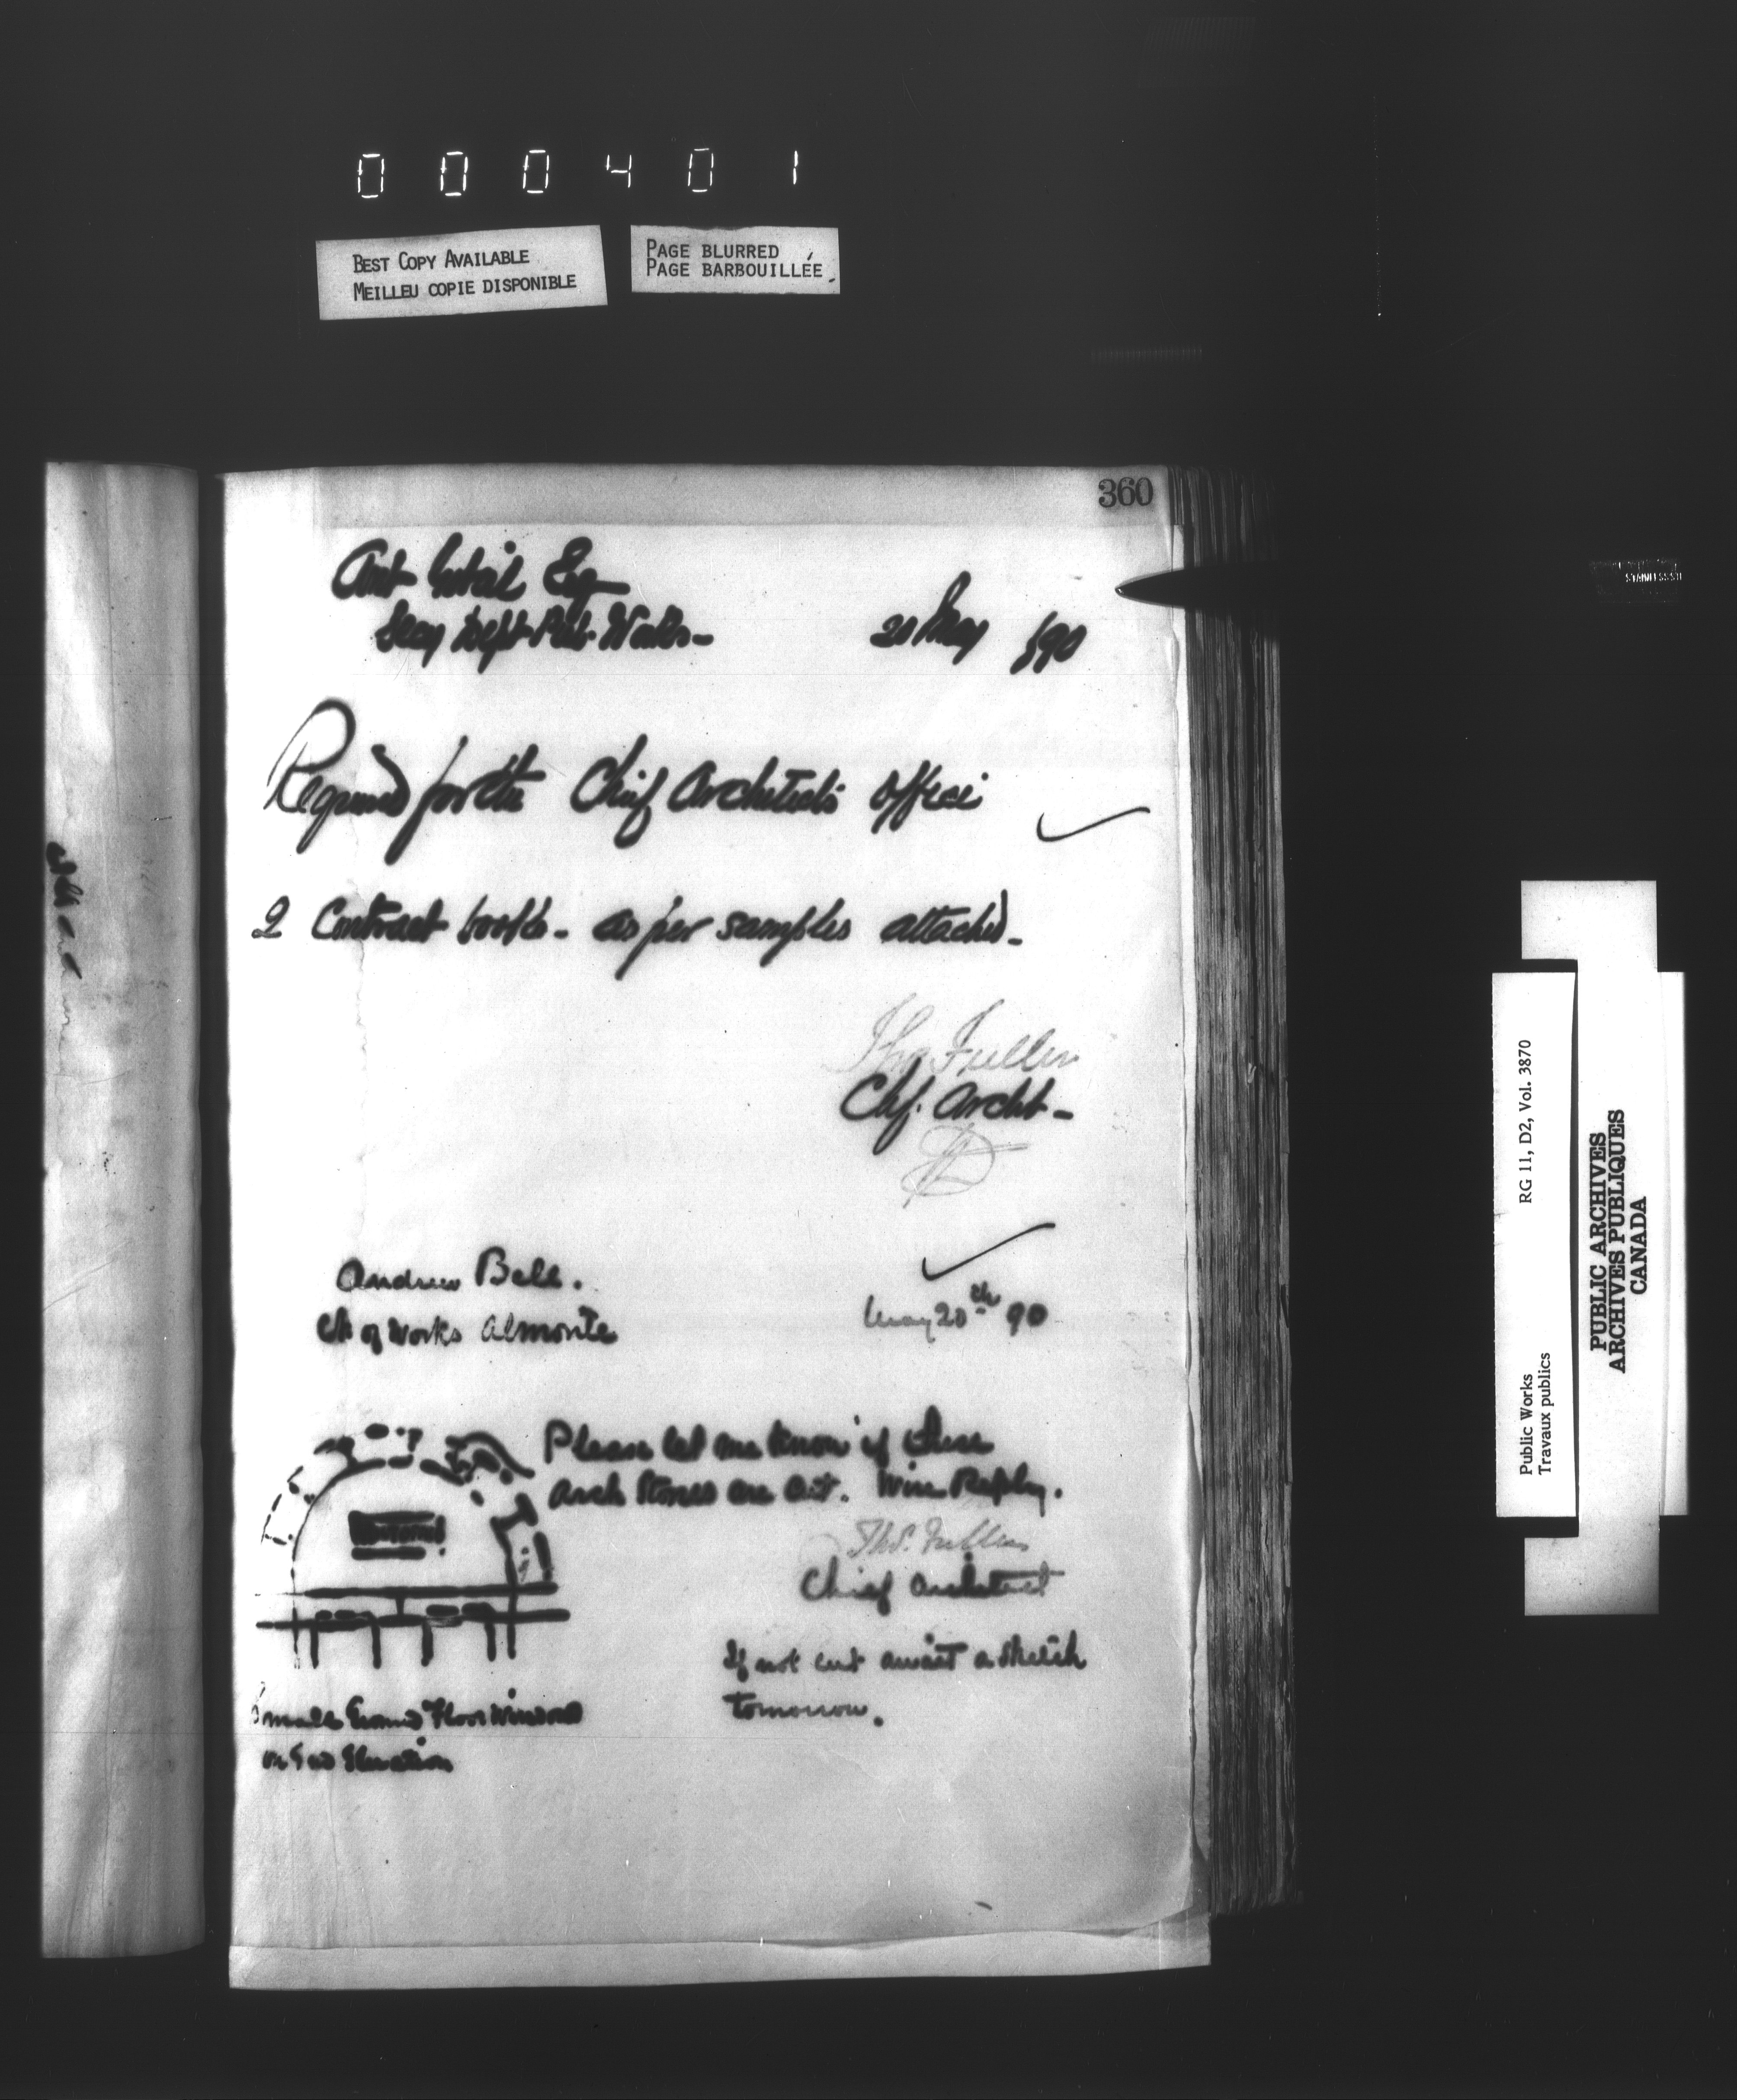 000401
BEST COPY AVAILABLE
MEILLEU COPIE DISPONIBLE
PAGE BLURRED
PAGE BARBOUILLÉE
360
Ant Gobeil Esq
Secy Dept Pub Works -
20 May /90
Required for the Chief Architect's office
2 Contract books - as per samples attached -
Thos Fuller
Chf. Archt -
Andrew Bell.
Clk of Works Almonte
May 20th 90
Please let me know if these
arch stones are cut. Wire Reply.
Thos. Fuller
Chief Architect
If not cut await a sketch
tomorrow.
Small Ground Floor Window
on Elevation
RG 11, D2, Vol. 3870
Public Works
Travaux publics
PUBLIC ARCHIVES
ARCHIVES PUBLIQUES
CANADA